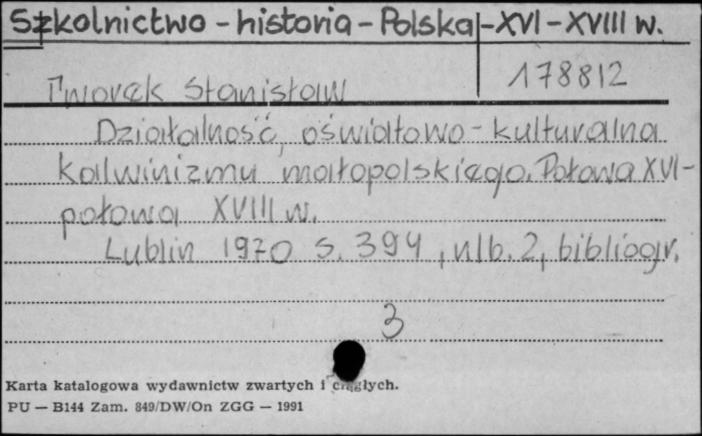 Szkolnictwo - historia - Polska - XVI - XVIII w.
Tworek Stanisław 178812
Działalność oświatowo - kulturalna
kalwinizmu małopolskiego. Połowa XVI -
połowa XVIII w.
Lublin 1970 s. 394, nlb. 2, bibliogr.
3
Karta katalogowa wydawnictw zwartych i ciągłych.
PU — B144 Zam. 849/DW/On ZGG — 1991